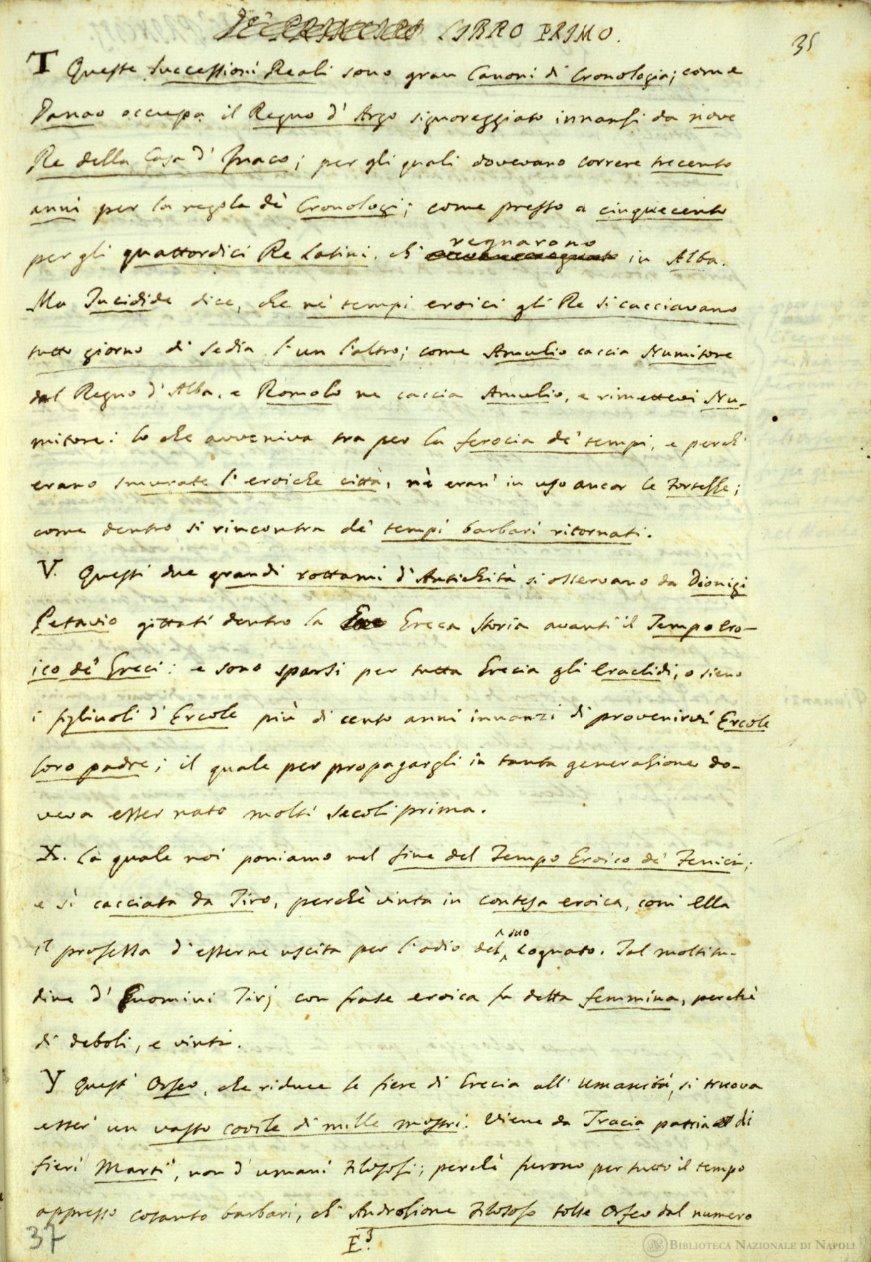 LIBRO PRIMO.
35
T Queste Successioni Reali sono gran Canoni di Cronologia; come
Danao occupa il Regno d'Argo signoreggiato innanzi da nove
Re della Casa d'Inaco; per gli quali dovevano correre trecento
anni per la regola de' Cronologi; come presso a cinquecento
per gli quattordici Re Latini, ch' regnarono in Alba.
Ma Tucidide dice, che ne' tempi eroici gli Re si cacciavano
tutto giorno di Sedia l'un l'altro; come Amulio caccia Numitore
dal Regno d'Alba, e Romolo ne caccia Amulio, e rimettevi Nu-
mitore: lo che avveniva tra per la ferocia de' tempi, e perchè
erano smurate l'eroiche città, nè eran' in uso ancor le Fortezze;
come dentro si rincontra de' tempi barbari ritornati.
V. Questi due grandi rottami d'Antichità si osservano da Dionigi
Petavio gittati dentro la Greca Storia avanti il Tempo Ero-
ico de' Greci: e sono sparsi per tutta Grecia gli Eraclidi, o sieno
i figliuoli d'Ercole più di cento anni innanzi di provenirvi Ercole
loro padre; il quale per propagargli in tanta generazione do-
veva esser nato molti secoli prima.
X. La quale noi poniamo nel fine del Tempo Eroico de' Fenici;
e sì cacciata da Tiro, perchè vinta in contesa eroica, com' Ella
il professa d'esserne uscita per l'odio del suo Cognato. Tal moltitu-
dine d'Huomini Tirj con frase eroica fu detta femmina, perchè
di deboli, e vinti.
Y Quest' Orfeo, che riduce le fiere di Grecia all' umanità, si truova
esser' un vasto covile di mille mostri. Viene da Tracia patria di
fieri Marti, non d'umani Filosofi; perchè furono per tutto il tempo
appresso cotanto barbari, ch' Androzione Filosofo tolse Orfeo dal numero
37
BIBLIOTECA NAZIONALE DI NAPOLI